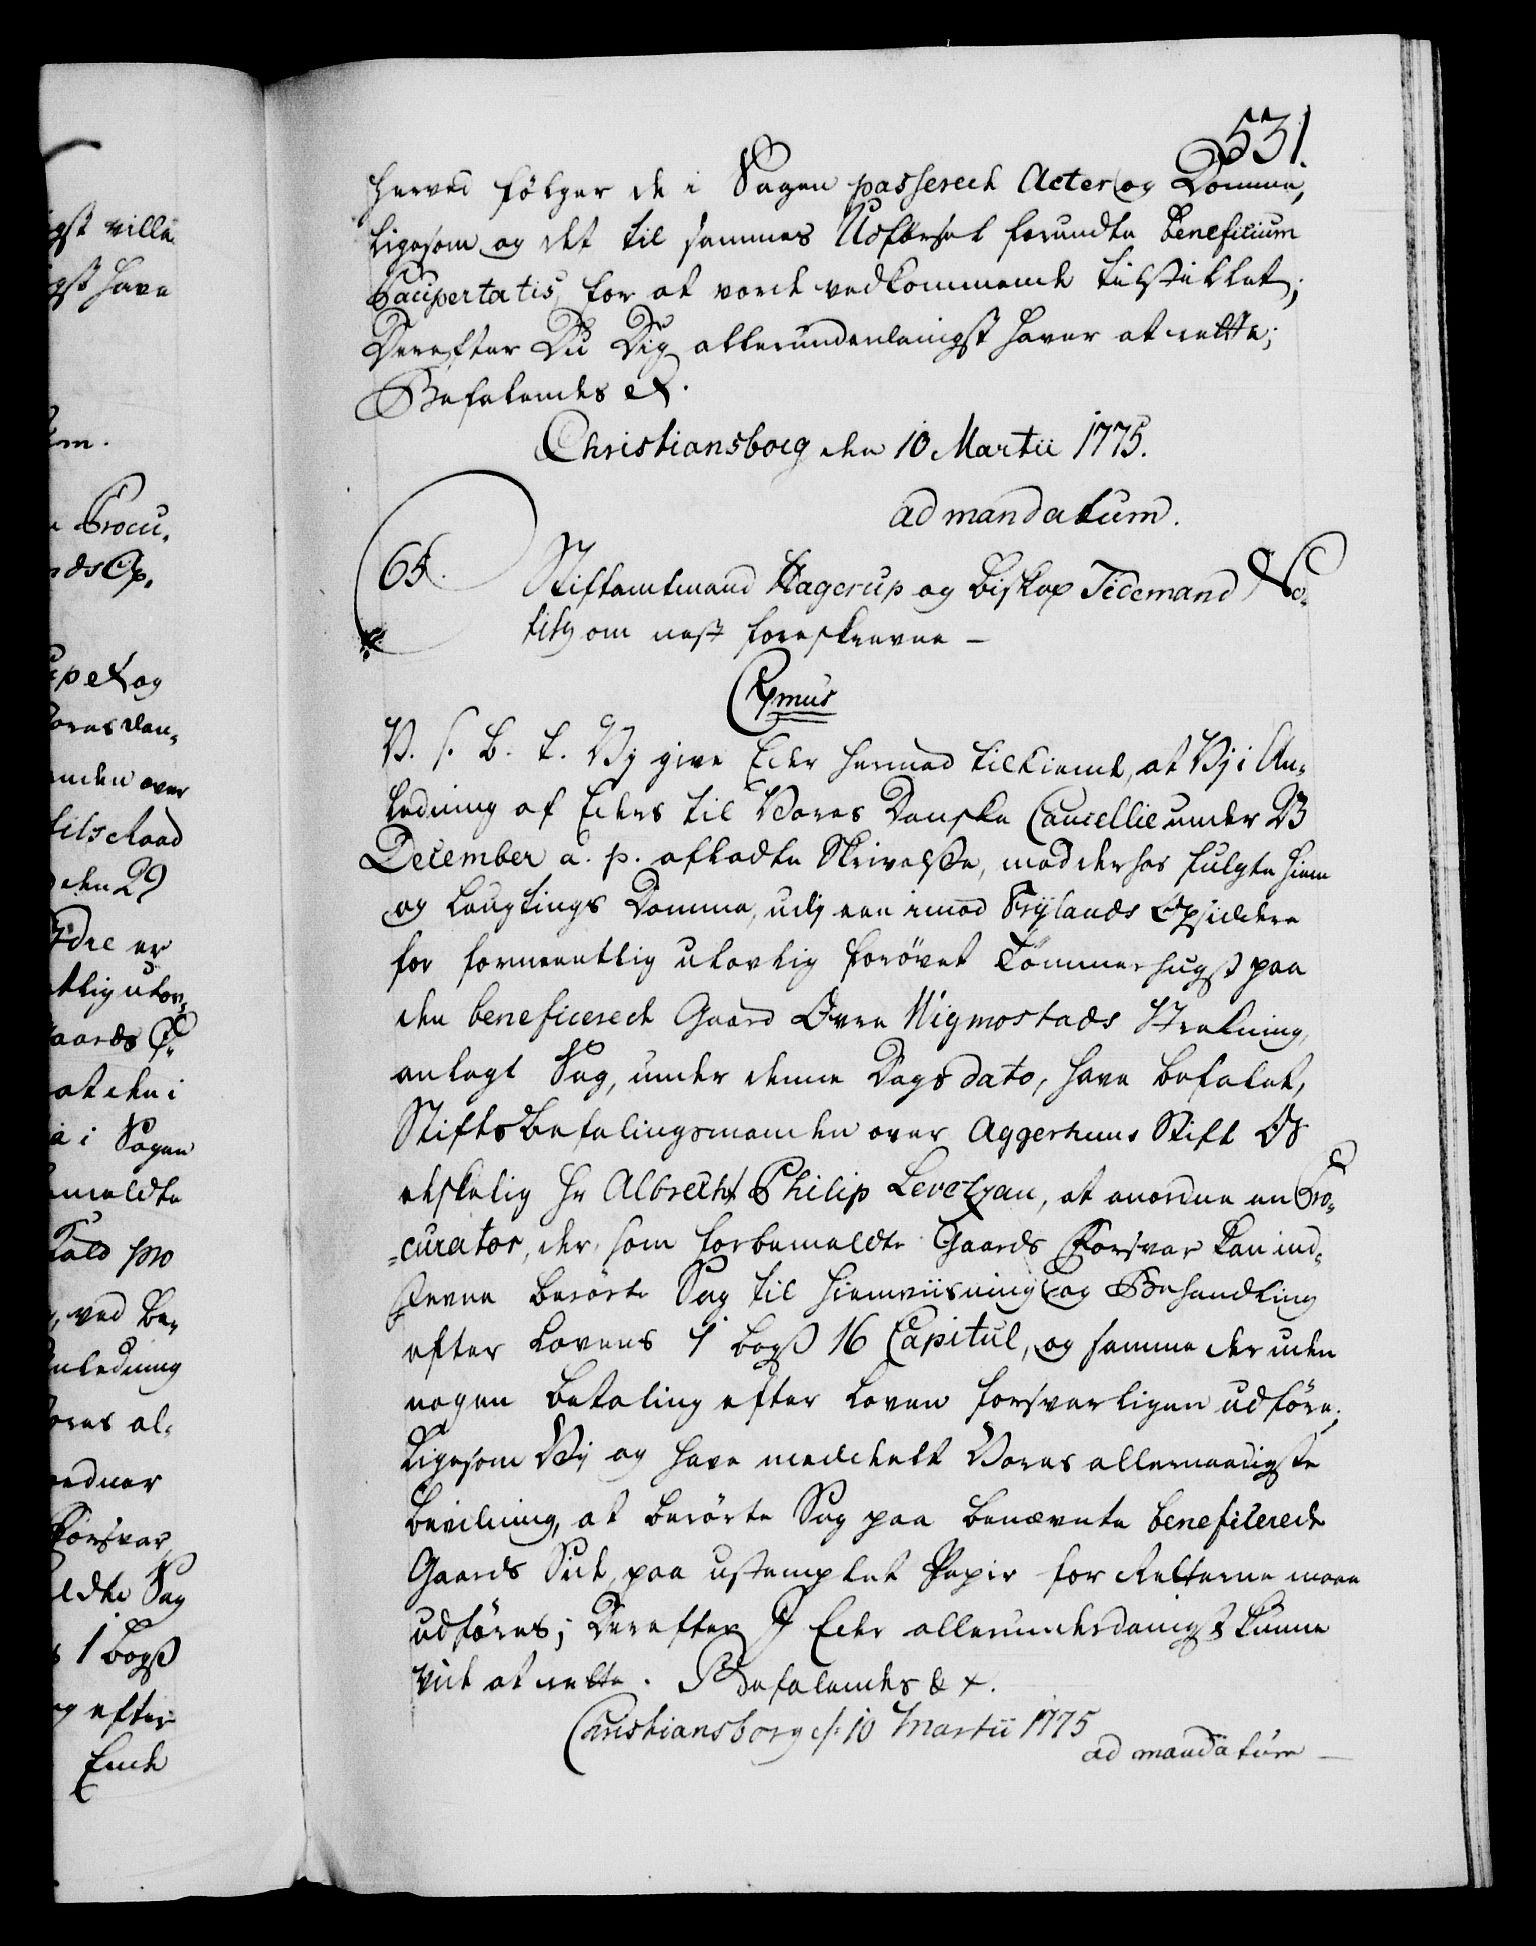 531.
herved følger de i Sagen passerede Acter og Domme,
ligesom og det til sammes Udførsel forundte beneficium
Paupertatis, for at vorde vedkommende tilstillet;
Derefter Du Dig allerunderdanigst haver at rette;
Befalendes &.
Christiansborg den 10 Martii 1775.
ad mandatum.
65. Stiftamtmand Hagerup og Biskop Tidemand No-
titz om næst foreskrevne —
Cymus
V. s. B. t. Vj give Eder hermed tilkiende, at Vj i An-
ledning af Eders til Vores Danske Cancellie under 23
December a. p. afladte Skrivelse, med derhos fulgte Hiem
og Laugtings Domme, udj een imod Frÿlands Opsiddere
for formeentlig ulovlig forøvet Tømmerhugst paa
den beneficerede Gaard Øvre Wigmostads Strekning,
anlagt Sag, under denne Dags dato, have befalet,
Stiftsbefalingsmanden over Aggerhuus Stift Os
elskelig Hr Albrecht Philip Levetzau, at anordne en Pro-
curator, der som forbemeldte Gaards Forsvar kan ind-
stevne berørte Sag til Hiemviisning og Behandling
efter Lovens 1 bogs 16 Capitul, og samme der uden
nogen betaling efter Loven forsvarligen udføre;
Ligesom Vj og have meddeelt Vores allernaadigste
bevilning, at berørte Sag paa benævnte beneficerede
Gaards Side, paa ustemplet Papir for Retterne maae
udføres; Derefter I Eder allerunderdanigst kunne
vide at rette. Befalendes &c.
Christiansborg d: 10 Martii 1775
ad mandatum —
igst ville
igst have
um.
Procu-
nds Op-
og
Vores dan-
manden over
Etats Raad
den 29
er
ntlig ulov-
Gaards
at den i
i Sagen
meldte
pro
, ved Be-
Anledning
Vores al-
ordner
Forsvar,
eldte Sag
1 bogs
og efter
Ende